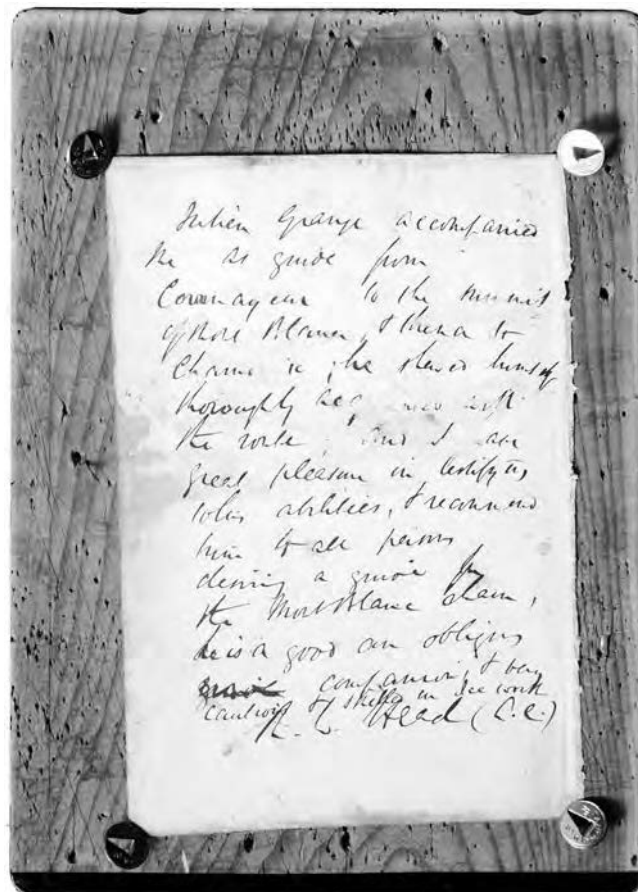 Julien Grange accompanied
me as guide from
Courmayeur to the summit
of Mont Blanc, & thence to
Chamounix, he shewed himself
thoroughly acq with
the route, and I
great pleasure in testifying
to his abilities, & recommend
him to all persons
desiring a guide for
the Mont Blanc chain,
he is a good an obliging
companion, & very
cautious & skilful in ice work
Head (A.C.)